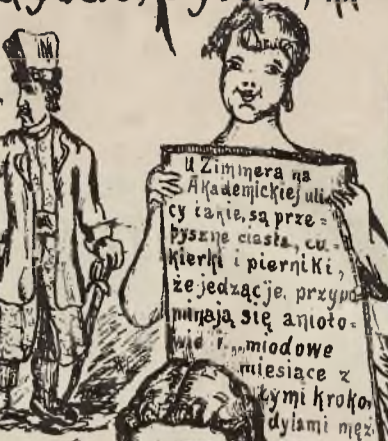 U Zimmera na
Akademickiej uli-
cy takie, są prze=
pyszne ciasta, cu-
kierki i pierniki,
że jedząc je, przypo
minają się anioło=
miodowe
miesiące z
łymi kroko
dylami męż